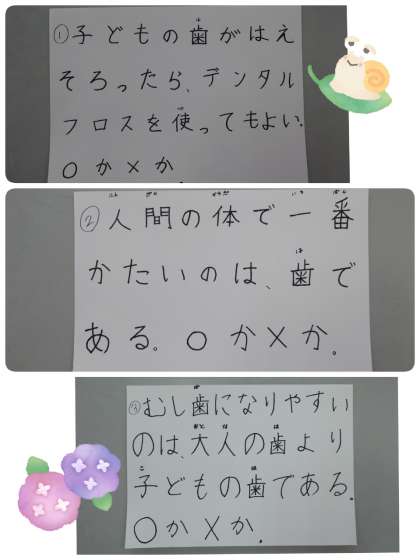 ①子どもの歯がはえ
そろったら、デンタル
フロスを使ってもよい。
○か×か。
②人間の体で一番
かたいのは、歯で
ある。○か×か。
③むし歯になりやすい
のは、大人の歯より
子どもの歯である。
○か×か。